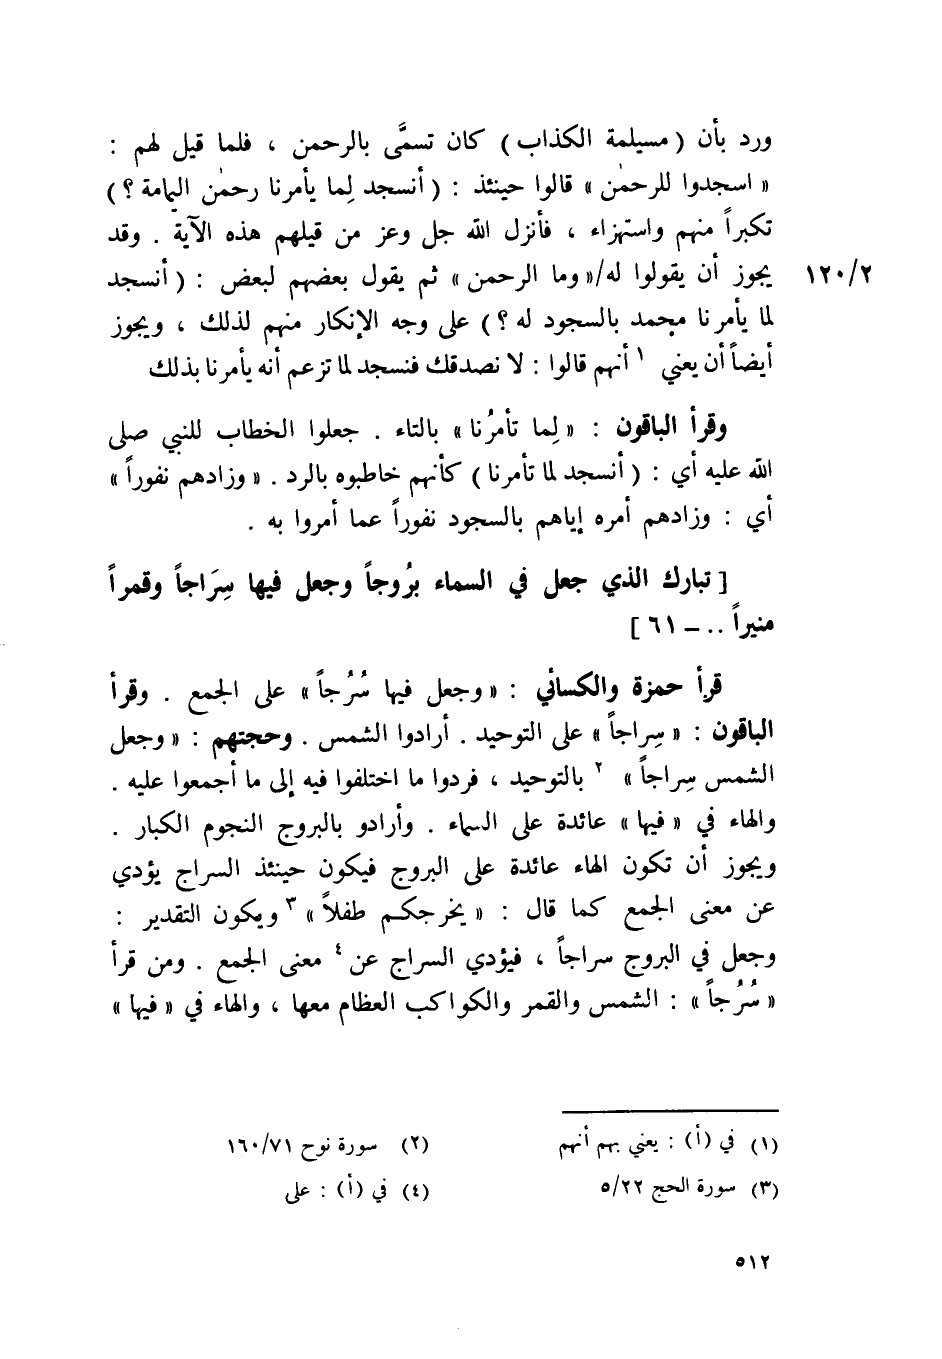 ورد بأن ( مسيلمة الكذاب ) كان تسمَّى بالرحمن ، فلما قيل لهم :
« اسجدوا للرحمٰن » قالوا حينئذ : ( أنسجد لِما يأمرنا رحمٰن اليمامة ؟ )
تكبراً منهم واستهزاء ، فأنزل الله جل وعز من قيلهم هذه الآية . وقد
يجوز أن يقولوا له/« وما الرحمن » ثم يقول بعضهم لبعض : ( أنسجد ١٢٠/٢
لما يأمرنا محمد بالسجود له ؟ ) على وجه الإنكار منهم لذلك ، ويجوز
أيضاً أن يعني ١ أنهم قالوا : لا نصدقك فنسجد لما تزعم أنه يأمرنا بذلك
وقرأ الباقون : « لِما تأمرُنا » بالتاء . جعلوا الخطاب للنبي صلى
الله عليه أي : ( أنسجد لما تأمرنا ) كأنهم خاطبوه بالرد . « وزادهم نفوراً »
أي : وزادهم أمره إياهم بالسجود نفوراً عما أمروا به .
[ تبارك الذي جعل في السماء بُروجاً وجعل فيها سِرَاجاً وقمراً
منيراً .. – ٦١ ]
قرأ حمزة والكسائي : « وجعل فيها سُرُجاً » على الجمع . وقرأ
الباقون : « سِراجاً » على التوحيد . أرادوا الشمس . وحجتهم : « وجعل
الشمس سِراجاً » ٢ بالتوحيد ، فردوا ما اختلفوا فيه إلى ما أجمعوا عليه .
والهاء في « فيها » عائدة على السماء . وأرادو بالبروج النجوم الكبار .
ويجوز أن تكون الهاء عائدة على البروج فيكون حينئذ السراج يؤدي
عن معنى الجمع كما قال : « يخرجكم طفلاً » ٣ ويكون التقدير :
وجعل في البروج سراجاً ، فيؤدي السراج عن ٤ معنى الجمع . ومن قرأ
« سُرُجاً » : الشمس والقمر والكواكب العظام معها ، والهاء في « فيها »
(١) في (أ) : يعني بهم أنهم (٢) سورة نوح ١٦٠/٧١
(٣) سورة الحج ٥/٢٢ (٤) في (أ) : على
٥١٢